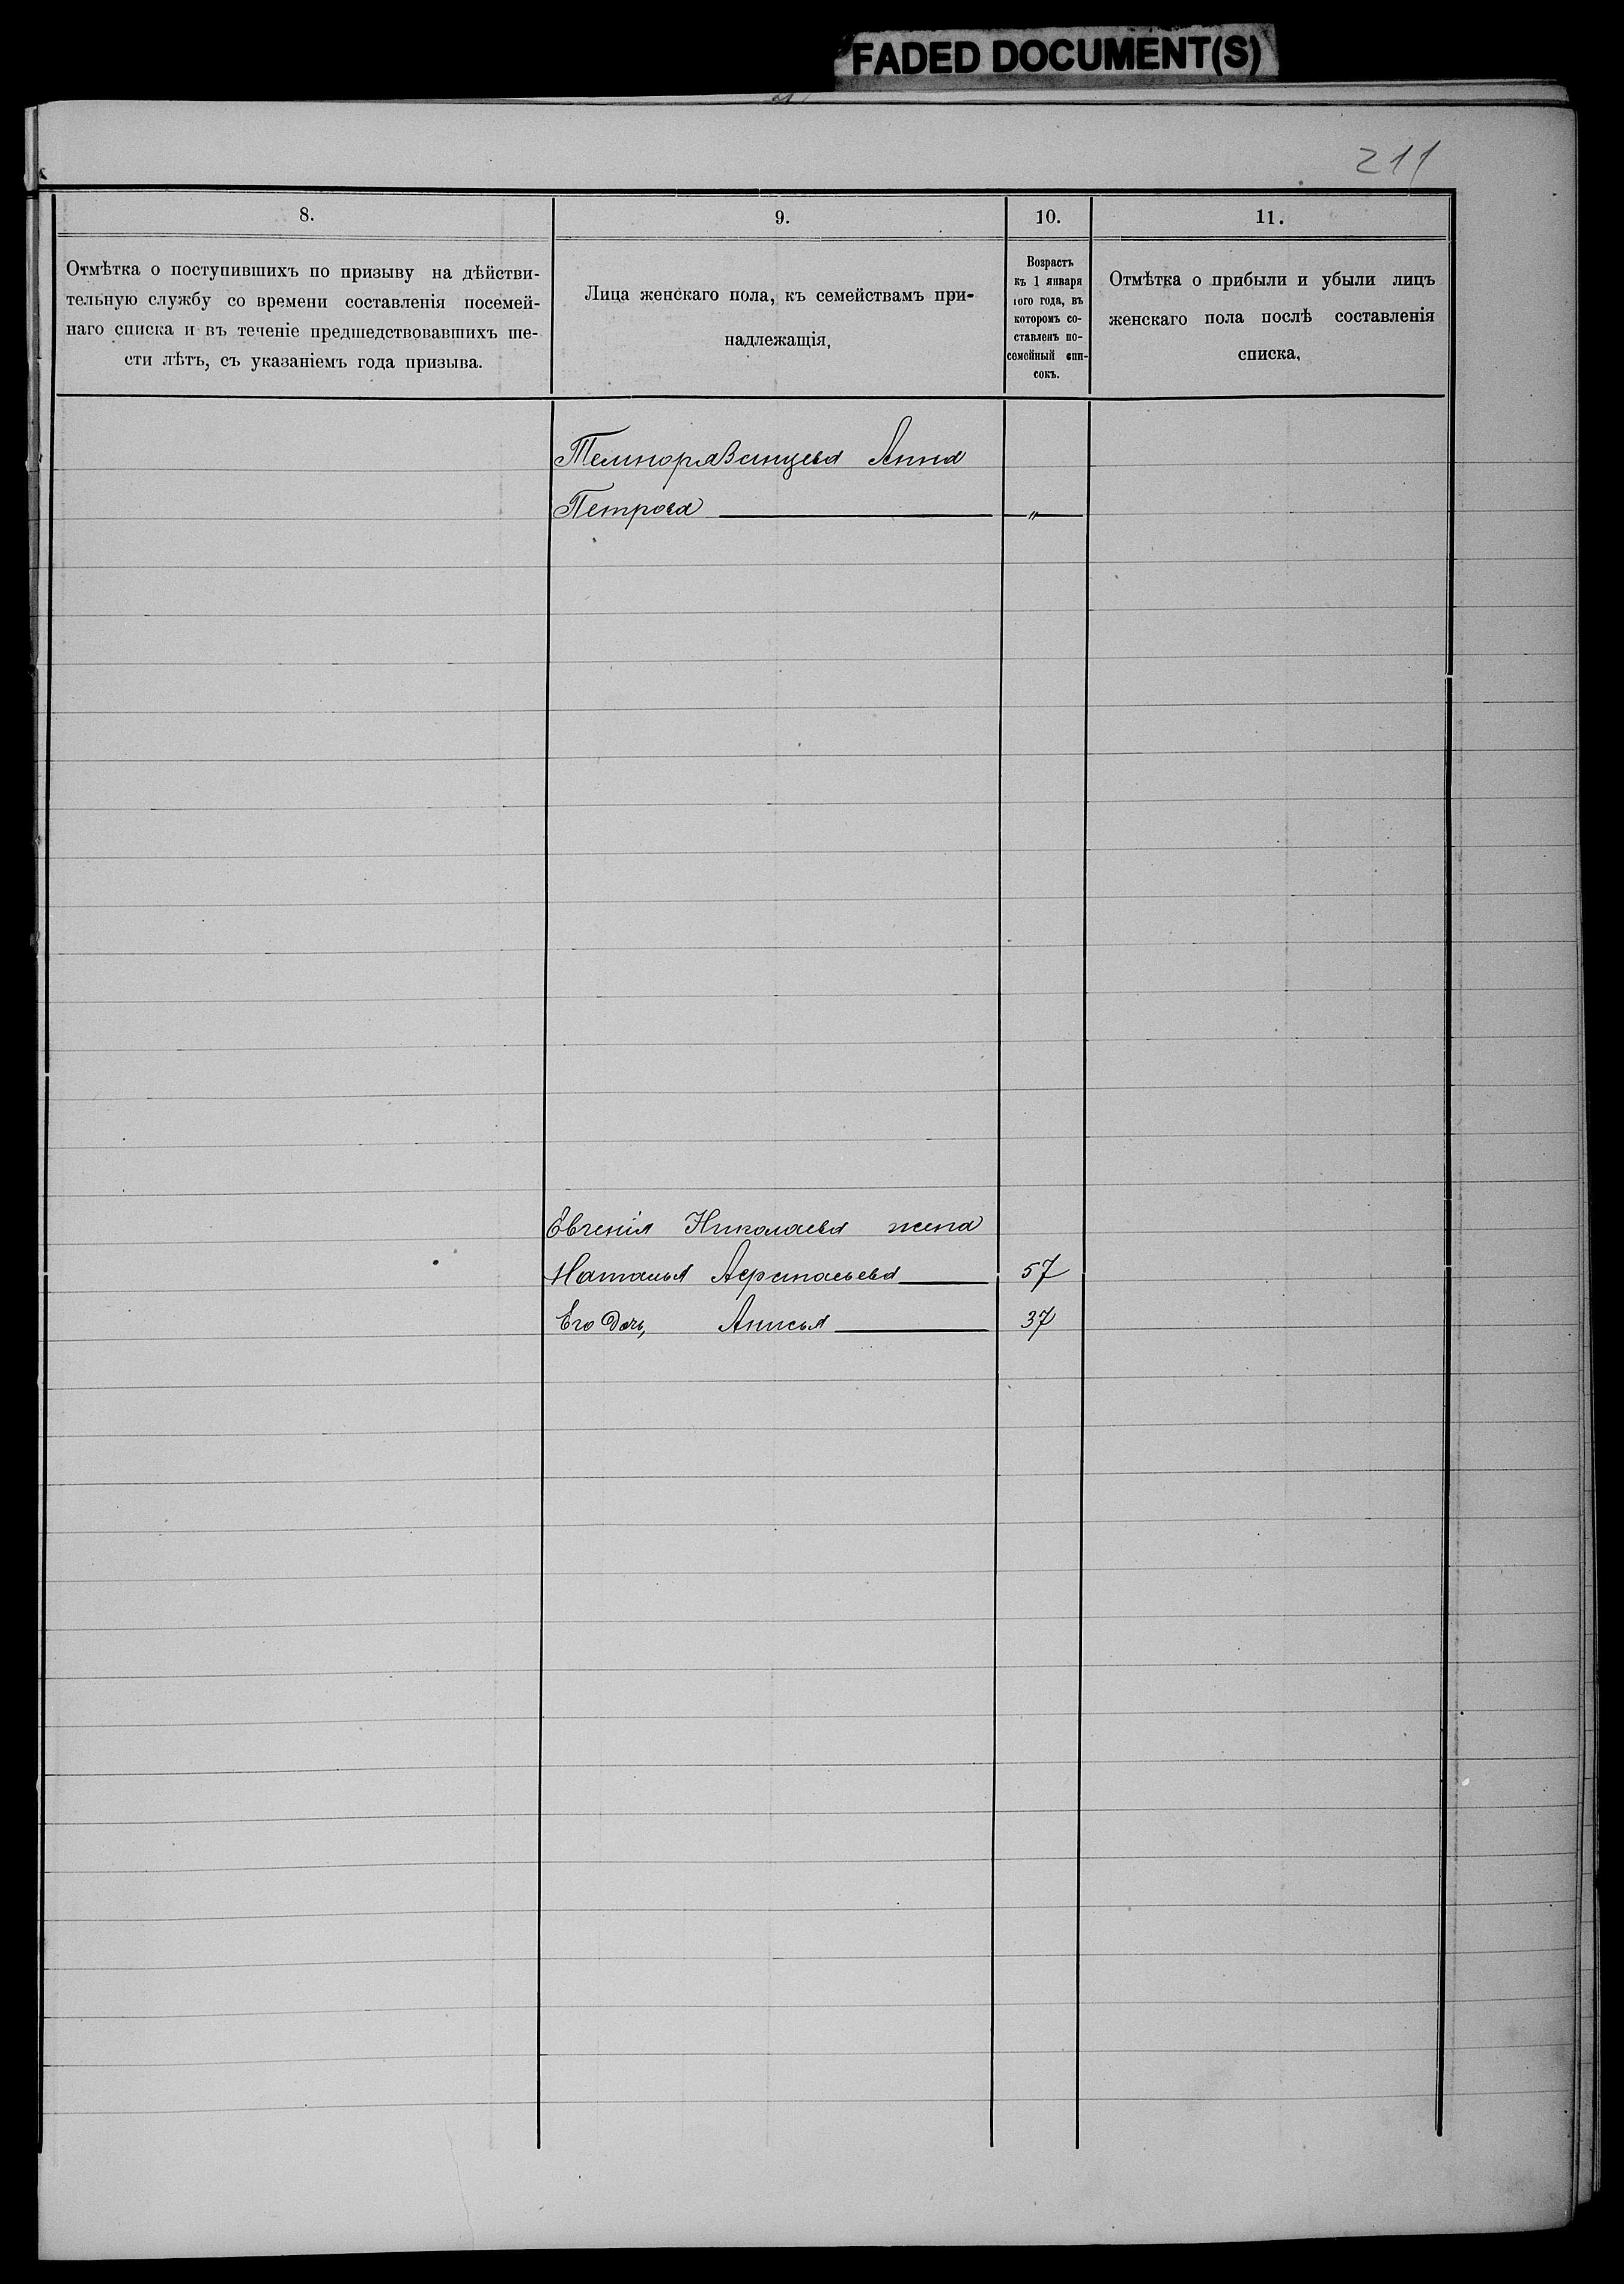 FADED DOCUMENT(S)
211
8.
Отмѣтка о поступившихъ по призыву на дѣйстви-
тельную службу со времени составленія посемей-
наго списка и въ теченіе предшедствовавшихъ ше-
сти лѣтъ, съ указаніемъ года призыва.
9.
Лица женскаго пола, къ семействамъ при-
надлежащія,
10.
Возрастъ
къ 1 января
того года, въ
которомъ со-
ставленъ по-
семейный спи-
сокъ.
11.
Отмѣтка о прибыли и убыли лицъ
женскаго пола послѣ составленія
списка,
Анна
Петрова — „ —
Евгенія Николаева жена
Наталья Афанасьева 57
Его дочь, Анисья 37